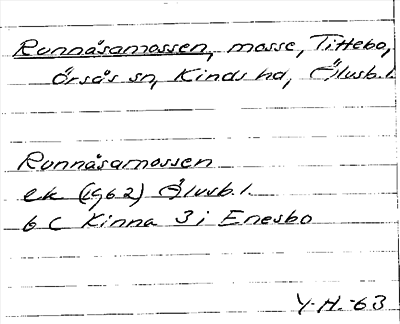 Runnåsamossen, mosse, Tittebo,
Örsås sn, Kinds hd, Älvsb.l.
Runnåsamossen
ek (1962) Älvsb.l.
6 C Kinna 3 i Enesbo
Y.H.-63